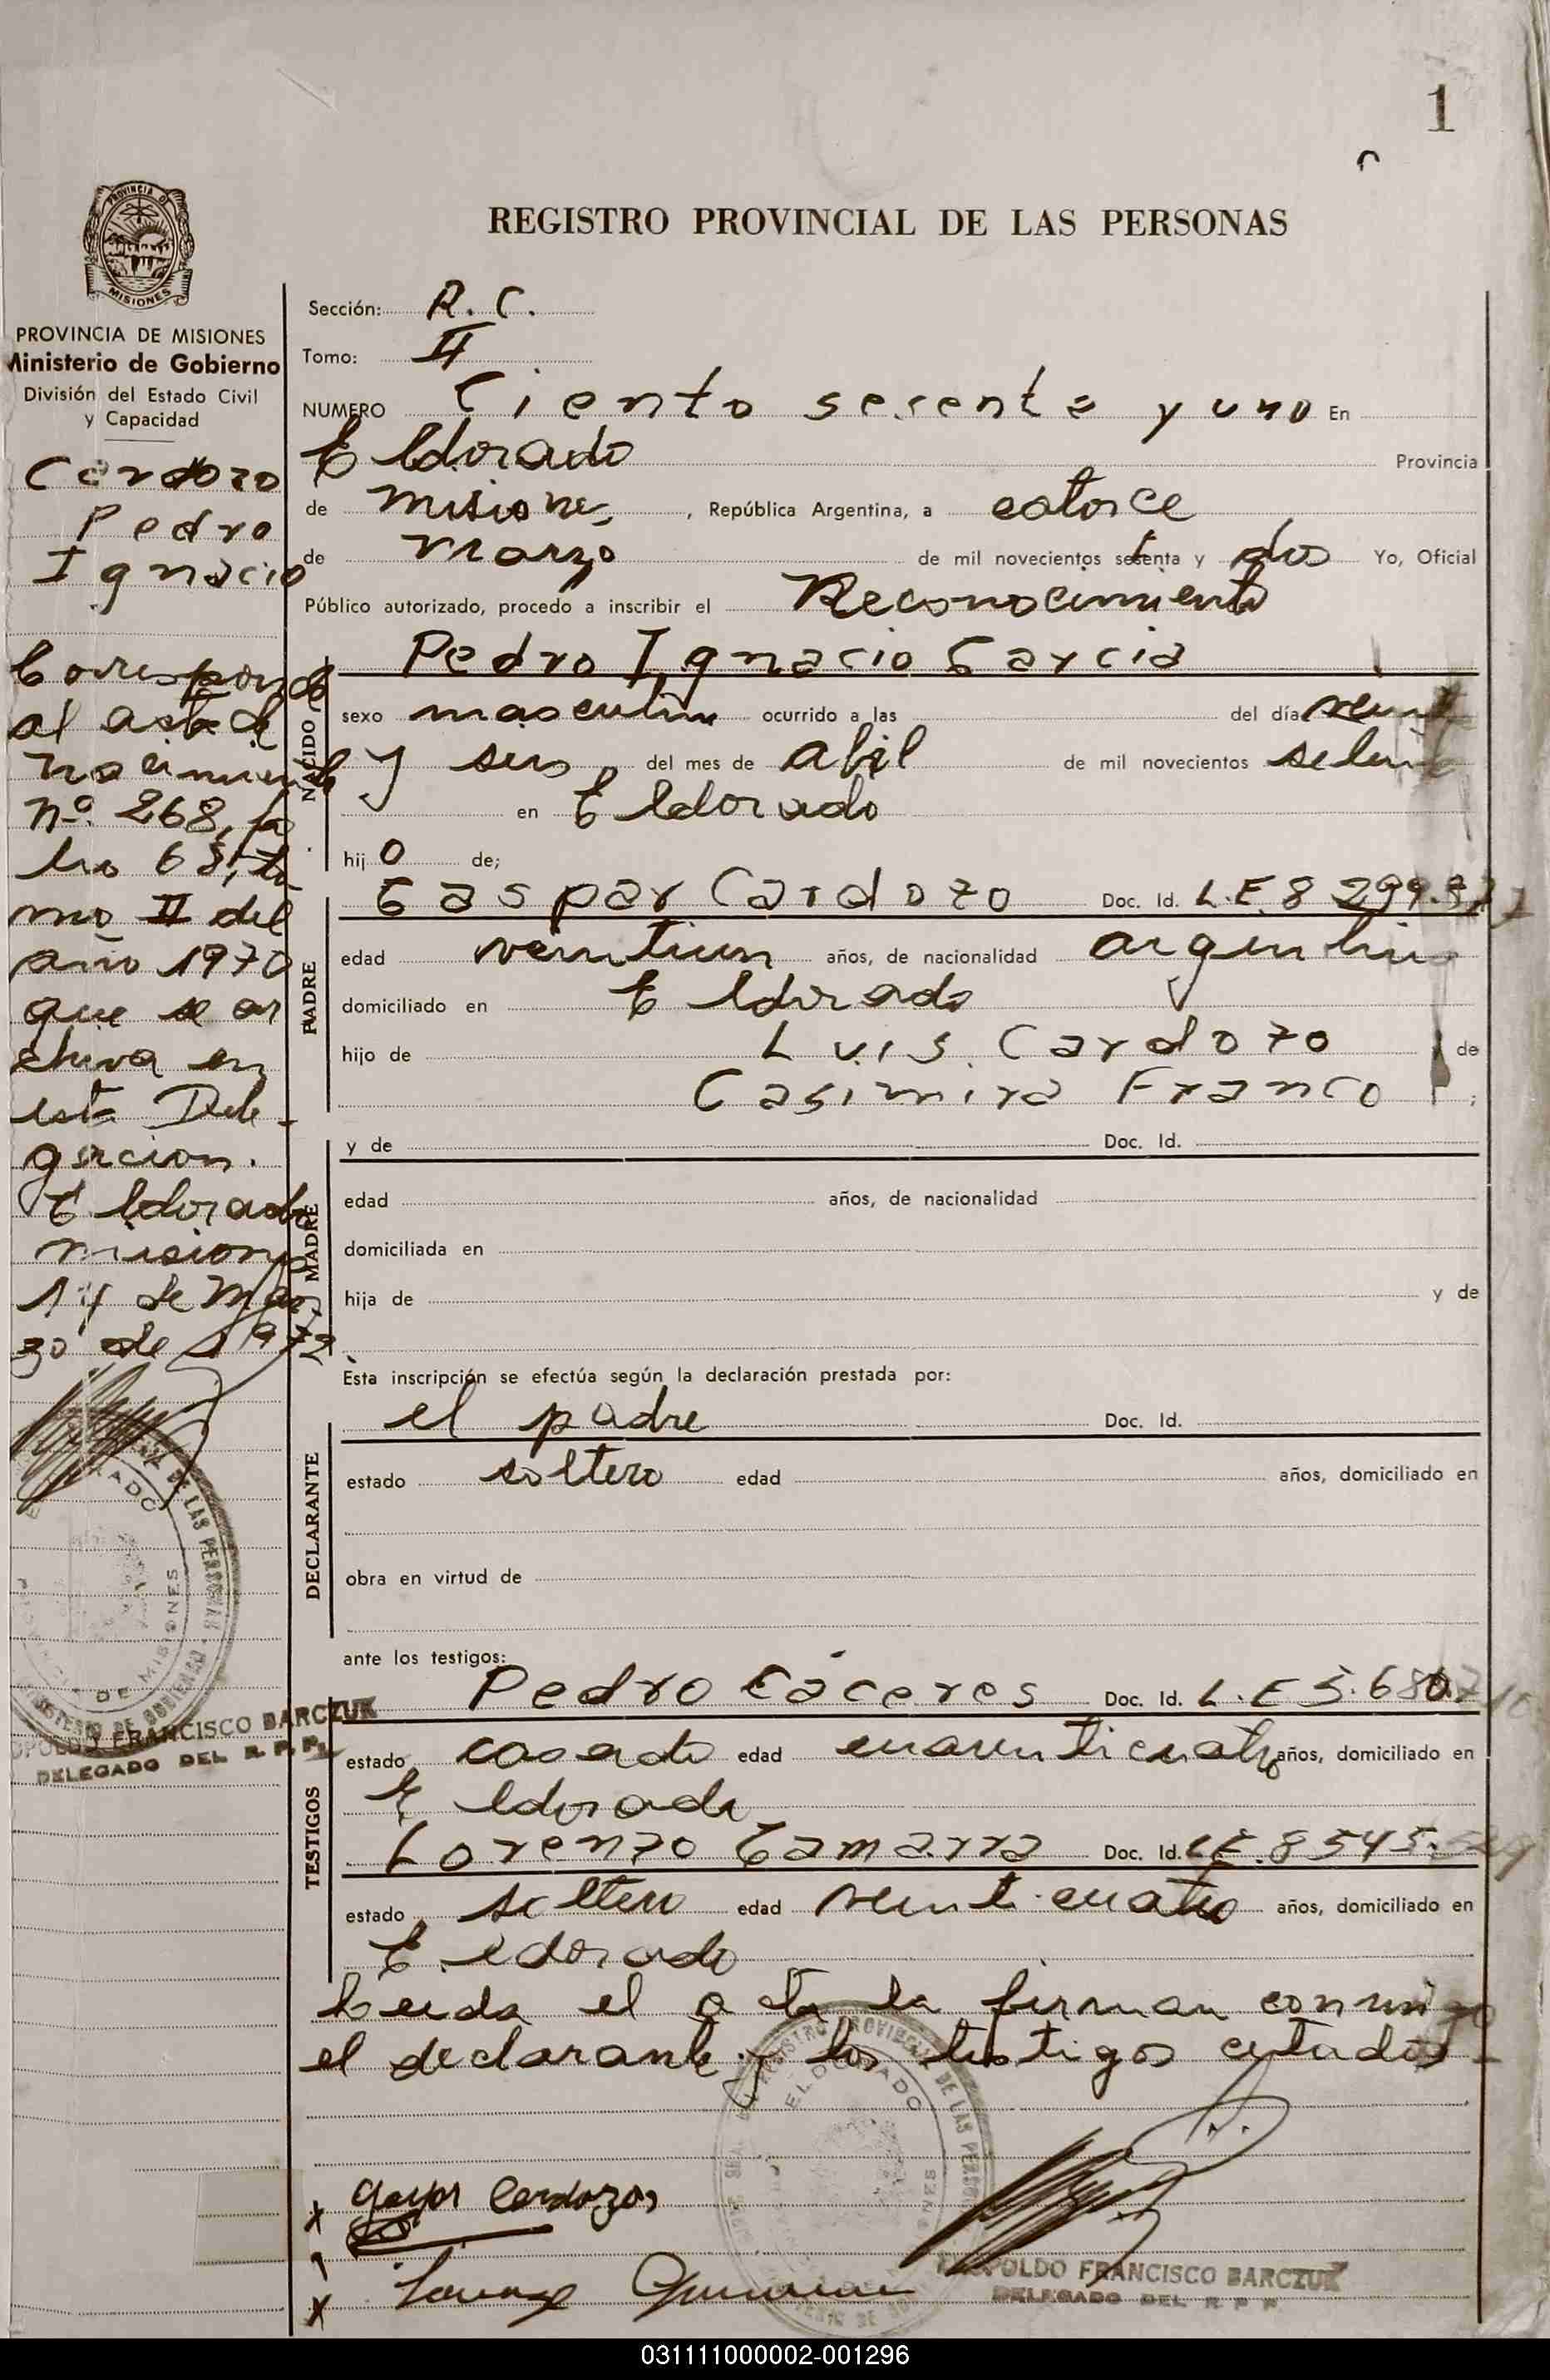 1
PROVINCIA DE
MISIONES
PROVINCIA DE MISIONES
Ministerio de Gobierno
División del Estado Civil
y Capacidad
Cardozo
Pedro
Ignacio
Corresponde
al acta de
nacimiento
nº 268, fo
lio 68, to
mo II del
año 1970
que se ar
chiva en
esta Dele-
gacion.
Eldorado
misiones
14 de Mar
zo de 1972
REGISTRO PROVINCIAL DE LAS PERSONAS
Sección: R. C.
Tomo: II
NUMERO Ciento sesenta y uno En
Eldorado Provincia
de Misiones, República Argentina, a catorce
de Marzo de mil novecientos setenta y dos Yo, Oficial
Público autorizado, procedo a inscribir el Reconocimiento
NACIDO
Pedro Ignacio Garcia
sexo masculino ocurrido a las del día veinti
y seis, del mes de abril de mil novecientos setenta
en Eldorado
hij o de;
PADRE
Gaspar Cardozo Doc. Id. L.E. 8 299.
edad veintiun años, de nacionalidad argentino
domiciliado en Eldorado
hijo de Luis Cardozo y de
Casimira Franco ;
MADRE
y de Doc. Id.
edad años, de nacionalidad
domiciliada en
hija de y de
Esta inscripción se efectúa según la declaración prestada por:
DECLARANTE
el padre Doc. Id.
estado soltero edad años, domiciliado en
obra en virtud de
ante los testigos:
TESTIGOS
Pedro Cáceres Doc. Id. L.E 5.680.
estado casado edad cuarenticuatro años, domiciliado en
Eldorado
Lorenzo Gamarra Doc. Id. L.E. 8545.
estado soltero edad veinticuatro años, domiciliado en
Eldorado
Leida el acta la firman conmigo
el declarante y los testigos citados-
x Gaspar Cardozo
x
LEOPOLDO FRANCISCO BARCZUK
DELEGADO DEL R. P. P.
LEOPOLDO FRANCISCO BARCZUK
DELEGADO DEL R. P. P.
ELDORADO
DE LAS PERSONAS
DE MISIONES
REGISTRO PROVINCIAL DE LAS PERSONAS
ELDORADO
031111000002-001296